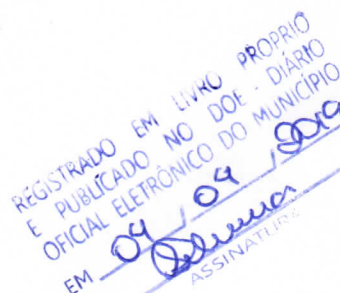 REGISTRADO EM LIVRO PROPRIO
E PUBLICADO NO DOE - DIÁRIO
OFICIAL ELETRÔNICO DO MUNICÍPIO
EM 04 / 04 / 2019
ASSINATURA